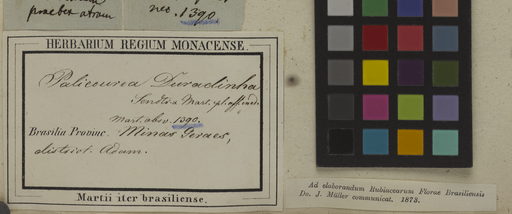 praebet atram
nec. 1390
HERBARIUM REGIUM MONACENSE.
Palicourea Duradinha
Mart. obs. 1390.
Brasilia Provinc. Minas Geraes,
district. Adam.
Martii iter brasiliense.
Ad elaborandum Rubiacearum Florae Brasiliensis
Do. J. Müller communicat. 1873.